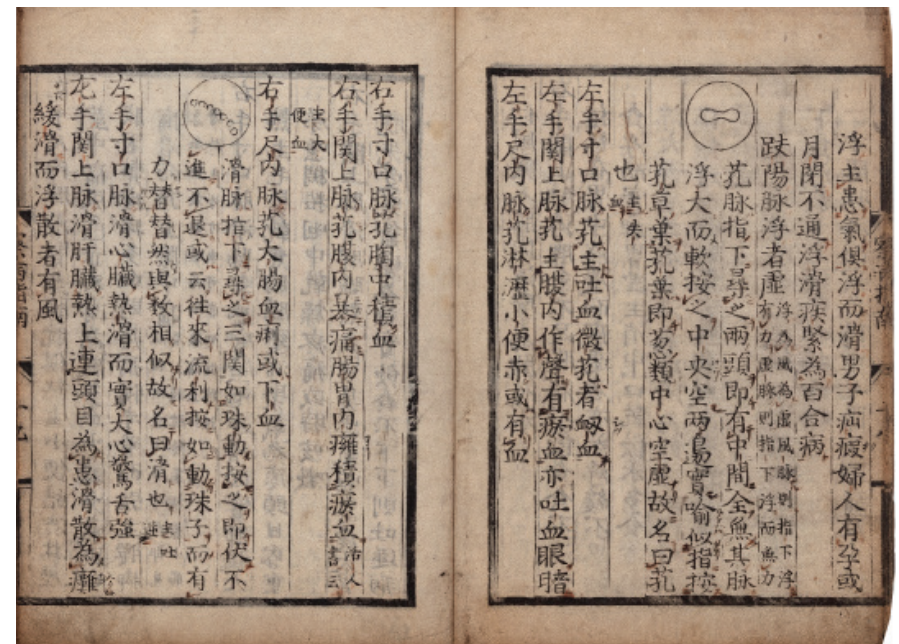 浮主患氣俱浮而滑男子疝瘕婦人有孕或
月閉不通浮滑疾緊為百合病
趺陽脉浮者虛浮為風為虛風脉則指下浮有力虛脉則指下浮而無力
芤脉指下尋之兩頭即有中間全無其脉
浮大而軟按之中央空兩邊實喻似指按
芤草葉芤葉即葱類中心空虛故名曰芤
也主失血
左手寸口脉芤主吐血微芤者衂血
左手関上脉芤主腹内作聲有瘀血亦吐血眼暗
左手尺内脉芤淋瀝小便赤或有血
右手寸口脉芤胸中積血
右手関上脉芤腹内暴痛腸胃内癰積瘀血活人書云
主大便血
右手尺内脉芤大腸血痢或下血
滑脉指下尋之三関如珠動按之即伏不
進不退或云往來流利按如動珠子而有
力替替然與数相似故名曰滑也主吐逆
左手寸口脉滑心臟熱滑而實大心驚舌強
左手関上脉滑肝臟熱上連頭目為患滑散為癱
緩滑而浮散者有風
指南